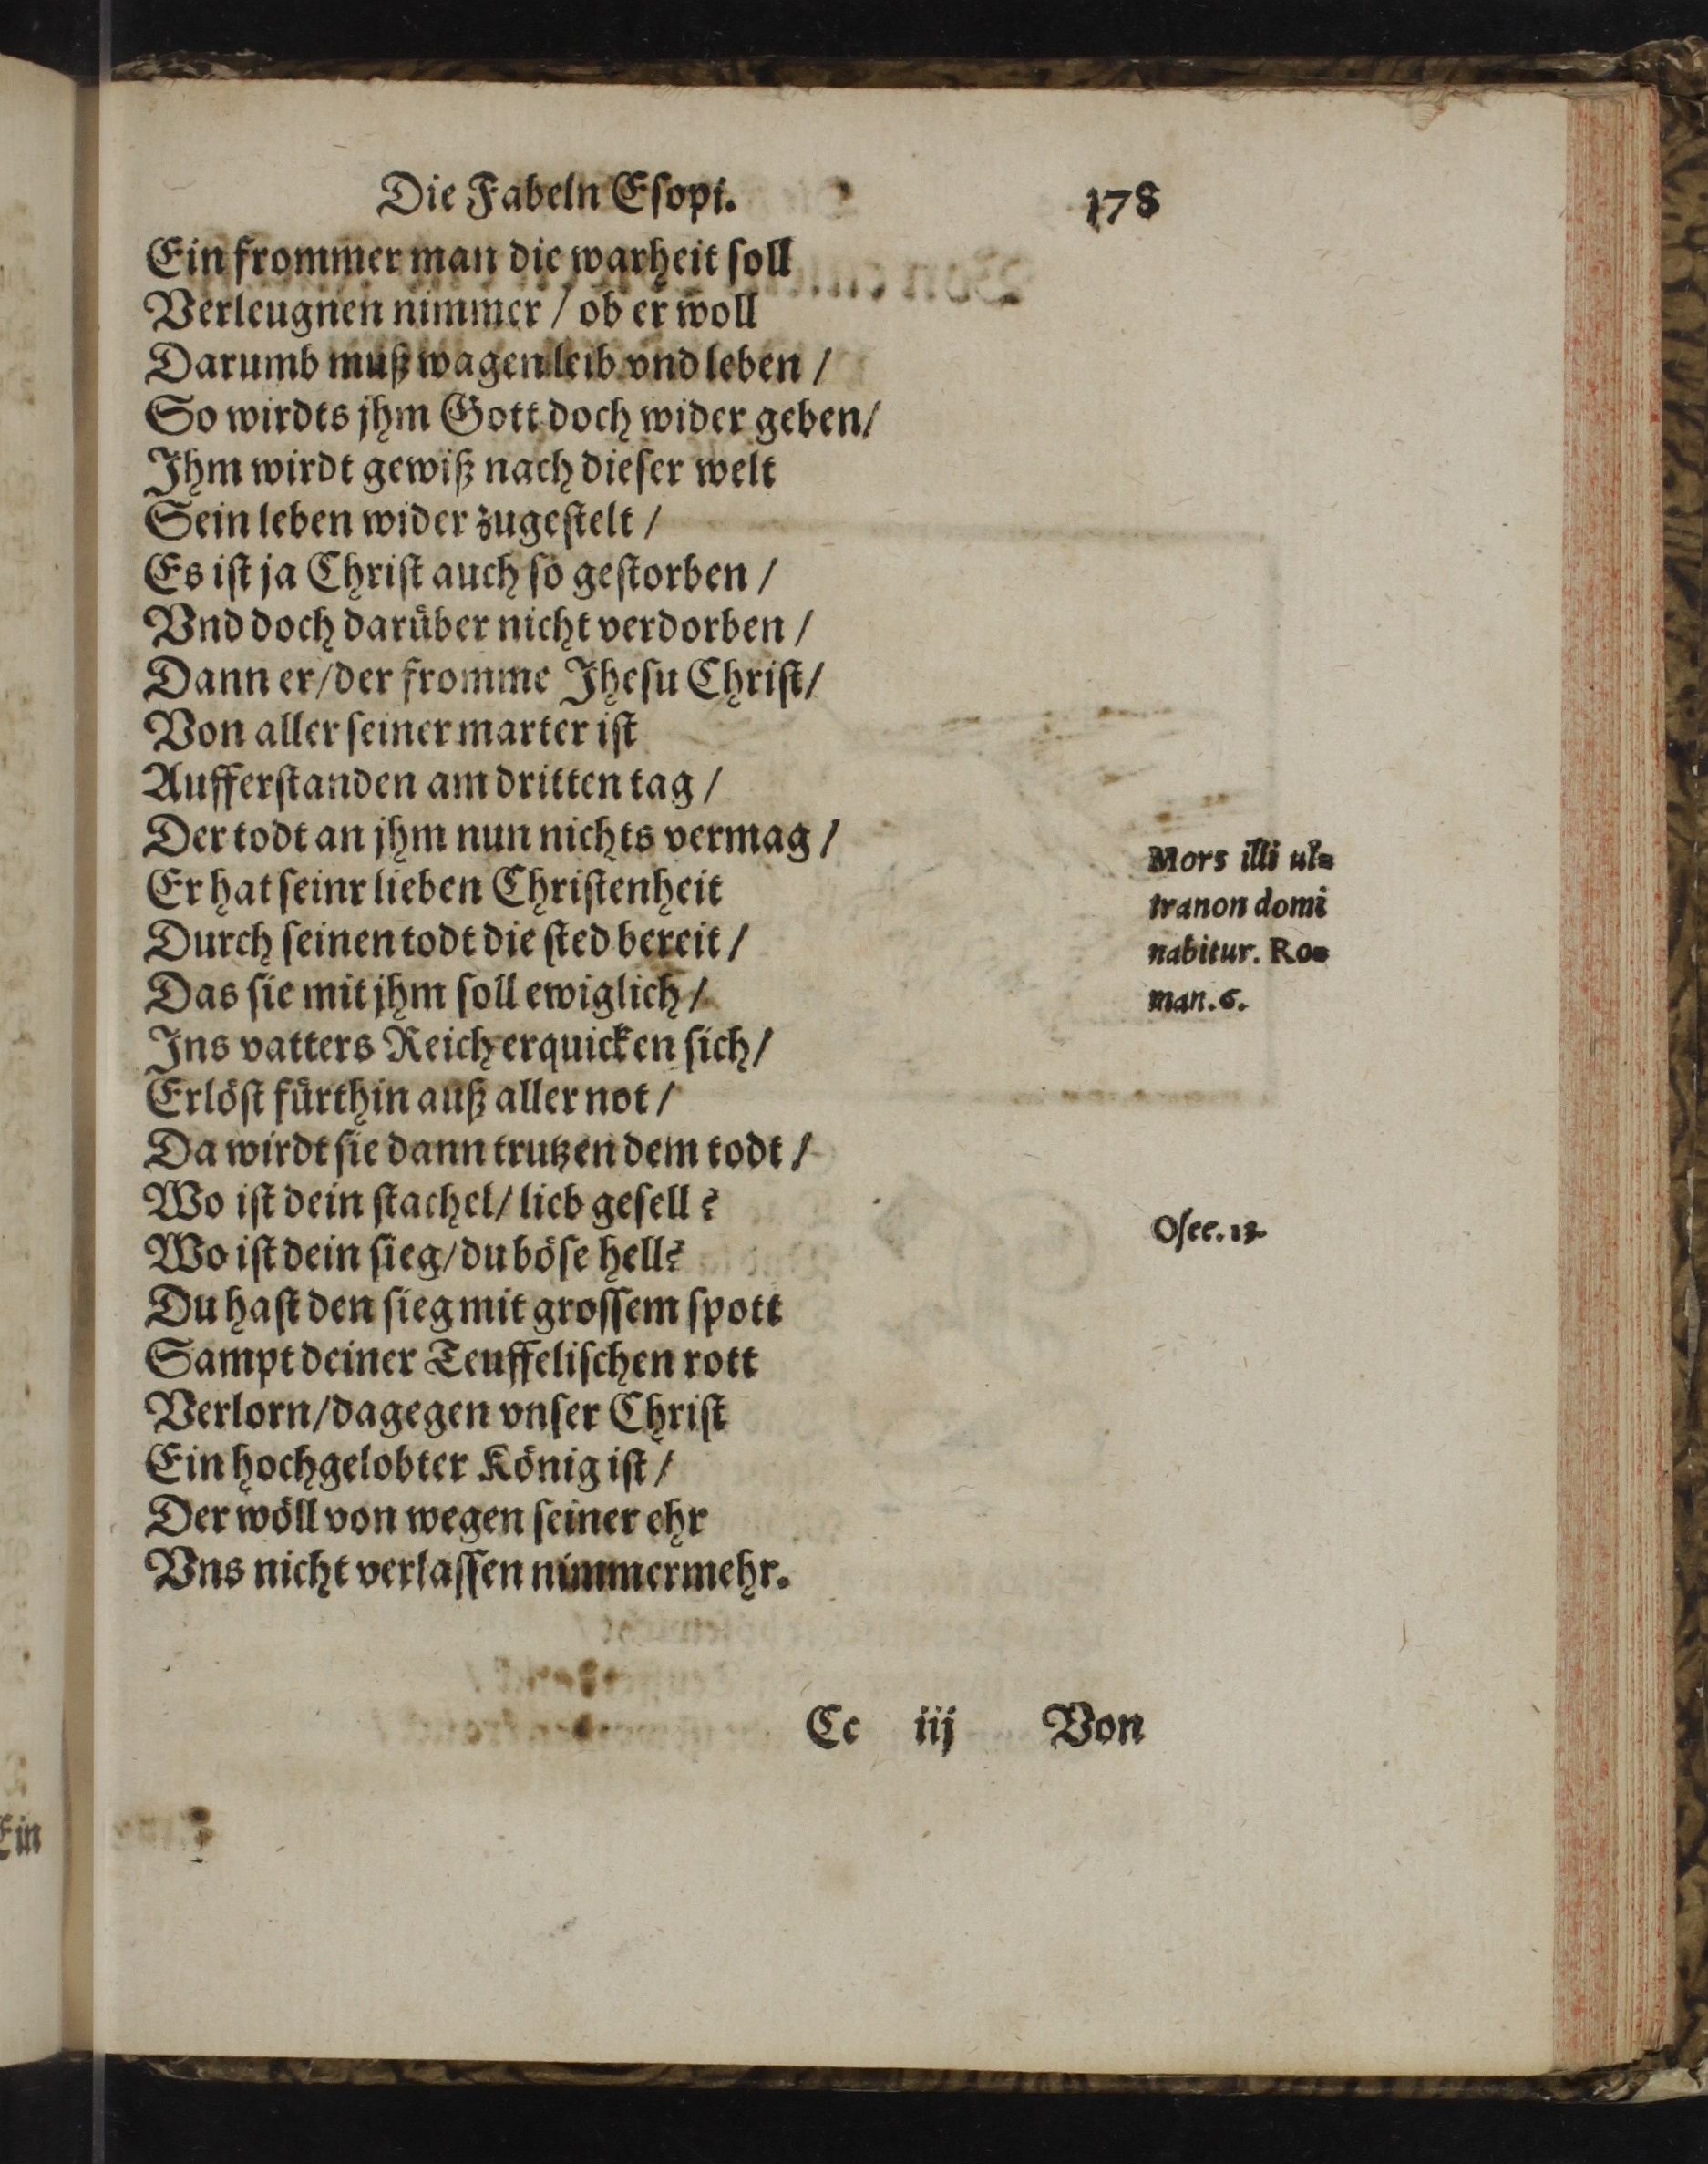 Die Fabeln Eſopi. 178
Ein frommer man die warheit ſoll
Verleugnen nimmer / ob er woll
Darumb muß wagen leib vnd leben /
So wirdts jhm Gott doch wider geben /
Ihm wirdt gewiß nach dieſer welt
Sein leben wider zugeſtelt /
Es iſt ja Chriſt auch ſo geſtorben /
Vnd doch daruͤber nicht verdorben /
Dann er / der fromme Jheſu Chriſt /
Von aller ſeiner marter iſt
Aufferſtanden am dritten tag /
Der todt an jhm nun nichts vermag /
Er hat ſeinr lieben Chriſtenheit
Durch ſeinen todt die ſted bereit /
Das ſie mit jhm ſoll ewiglich /
Ins vatters Reich erquicken ſich /
Erloͤſt fuͤrthin auß aller not /
Da wirdt ſie dann trutzen dem todt /
Wo iſt dein ſtachel / lieb geſell?
Wo iſt dein ſieg / du boͤſe hell?
Du haſt den ſieg mit groſſem ſpott
Sampt deiner Teuffeliſchen rott
Verlorn / dagegen vnſer Chriſt
Ein hochgelobter Koͤnig iſt /
Der woͤll von wegen ſeiner ehr
Vns nicht verlaſſen nimmermehr.
Mors illi ul=
tra non domi
nabitur. Ro=
man. 6.
Oſee. 13.
Cc iij Von
Ein